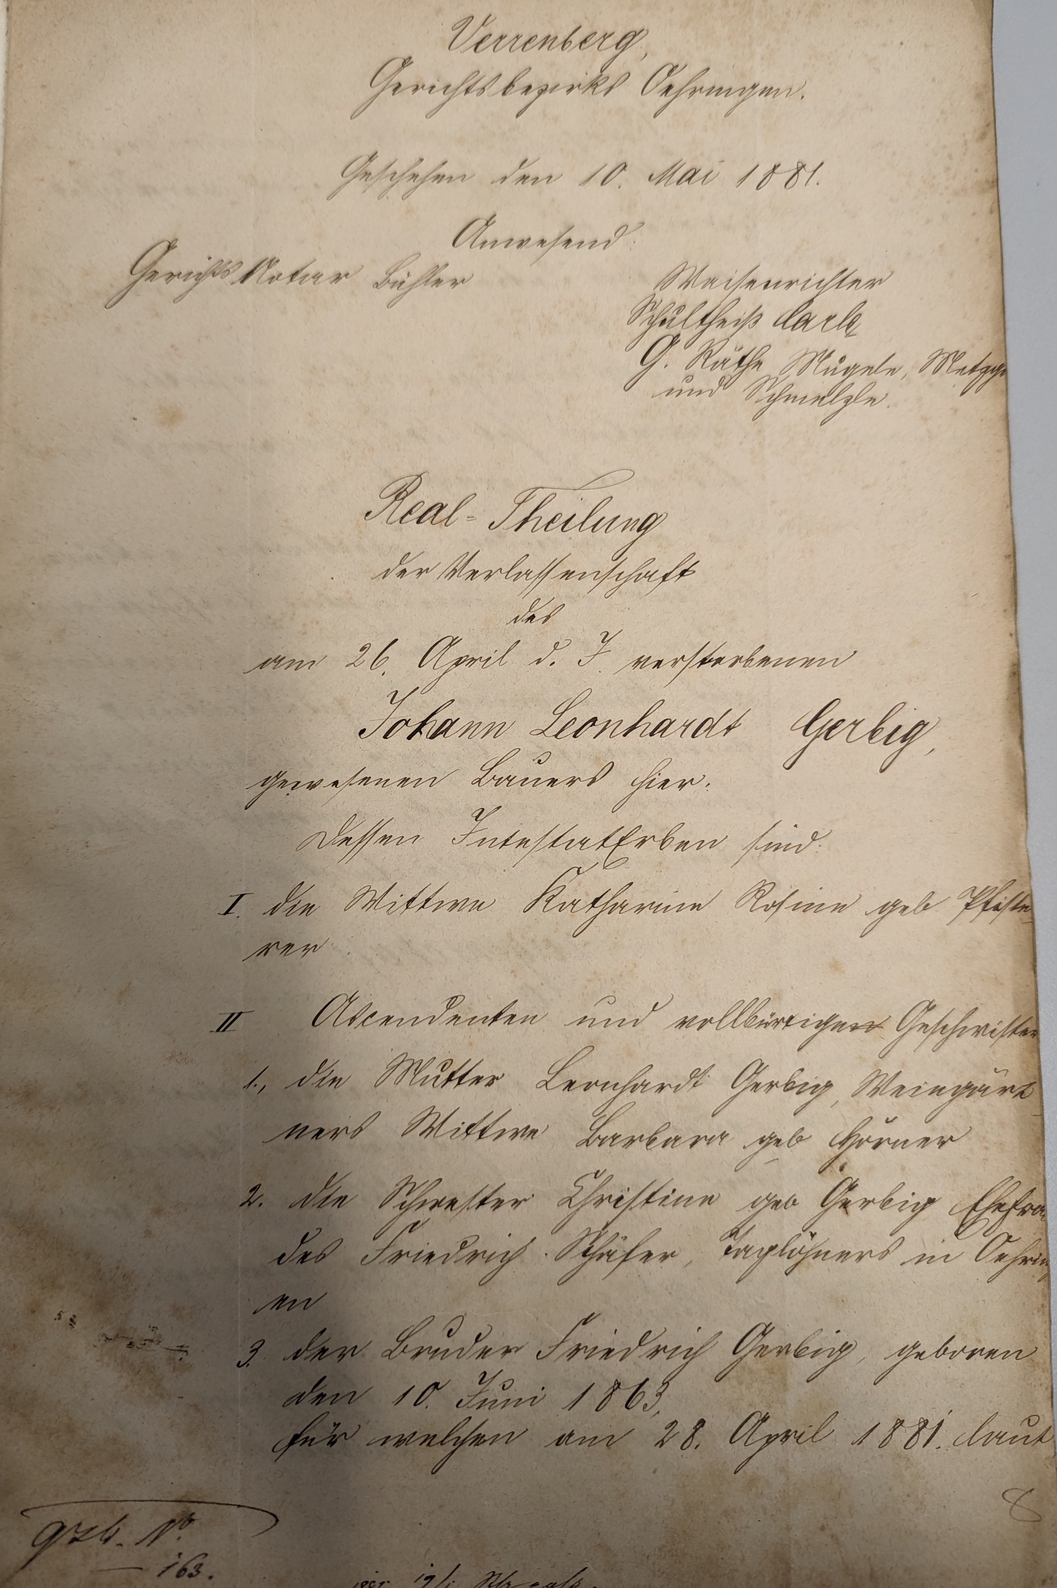 Verrenberg,
Gerichtsbezirks Oehringen.
Geschehen den 10. Mai 1881.
Anwesend:
Gerichts Notar Bühler
Waisenrichter
Schultheiß Carle
G. Räthe Mügele, Metzge
und Schmelzle.
Real-Theilung
der Verlassenschaft
des
am 26. April d. J. verstorbenen
Johann Leonhardt Gerbig,
gewesenen Bauers hier.
Dessen IntestatErben sind:
I. die Wittwe Katharine Rosine geb Pfiste
rer
II Ascendenten und vollbürtigen Geschwister
1., die Mutter Leonhardt Gerbig, Weingärt
ners Wittwe Barbara geb Hörner
2. die Schwester Christine geb Gerbig Ehefra
des Friedrich Schäfer, Taglöhners in Oehring
en
3. der Bruder Friedrich Gerbig, geboren
den 10. Juni 1863,
für welchen am 28. April 1881. laut
8
No.
163.